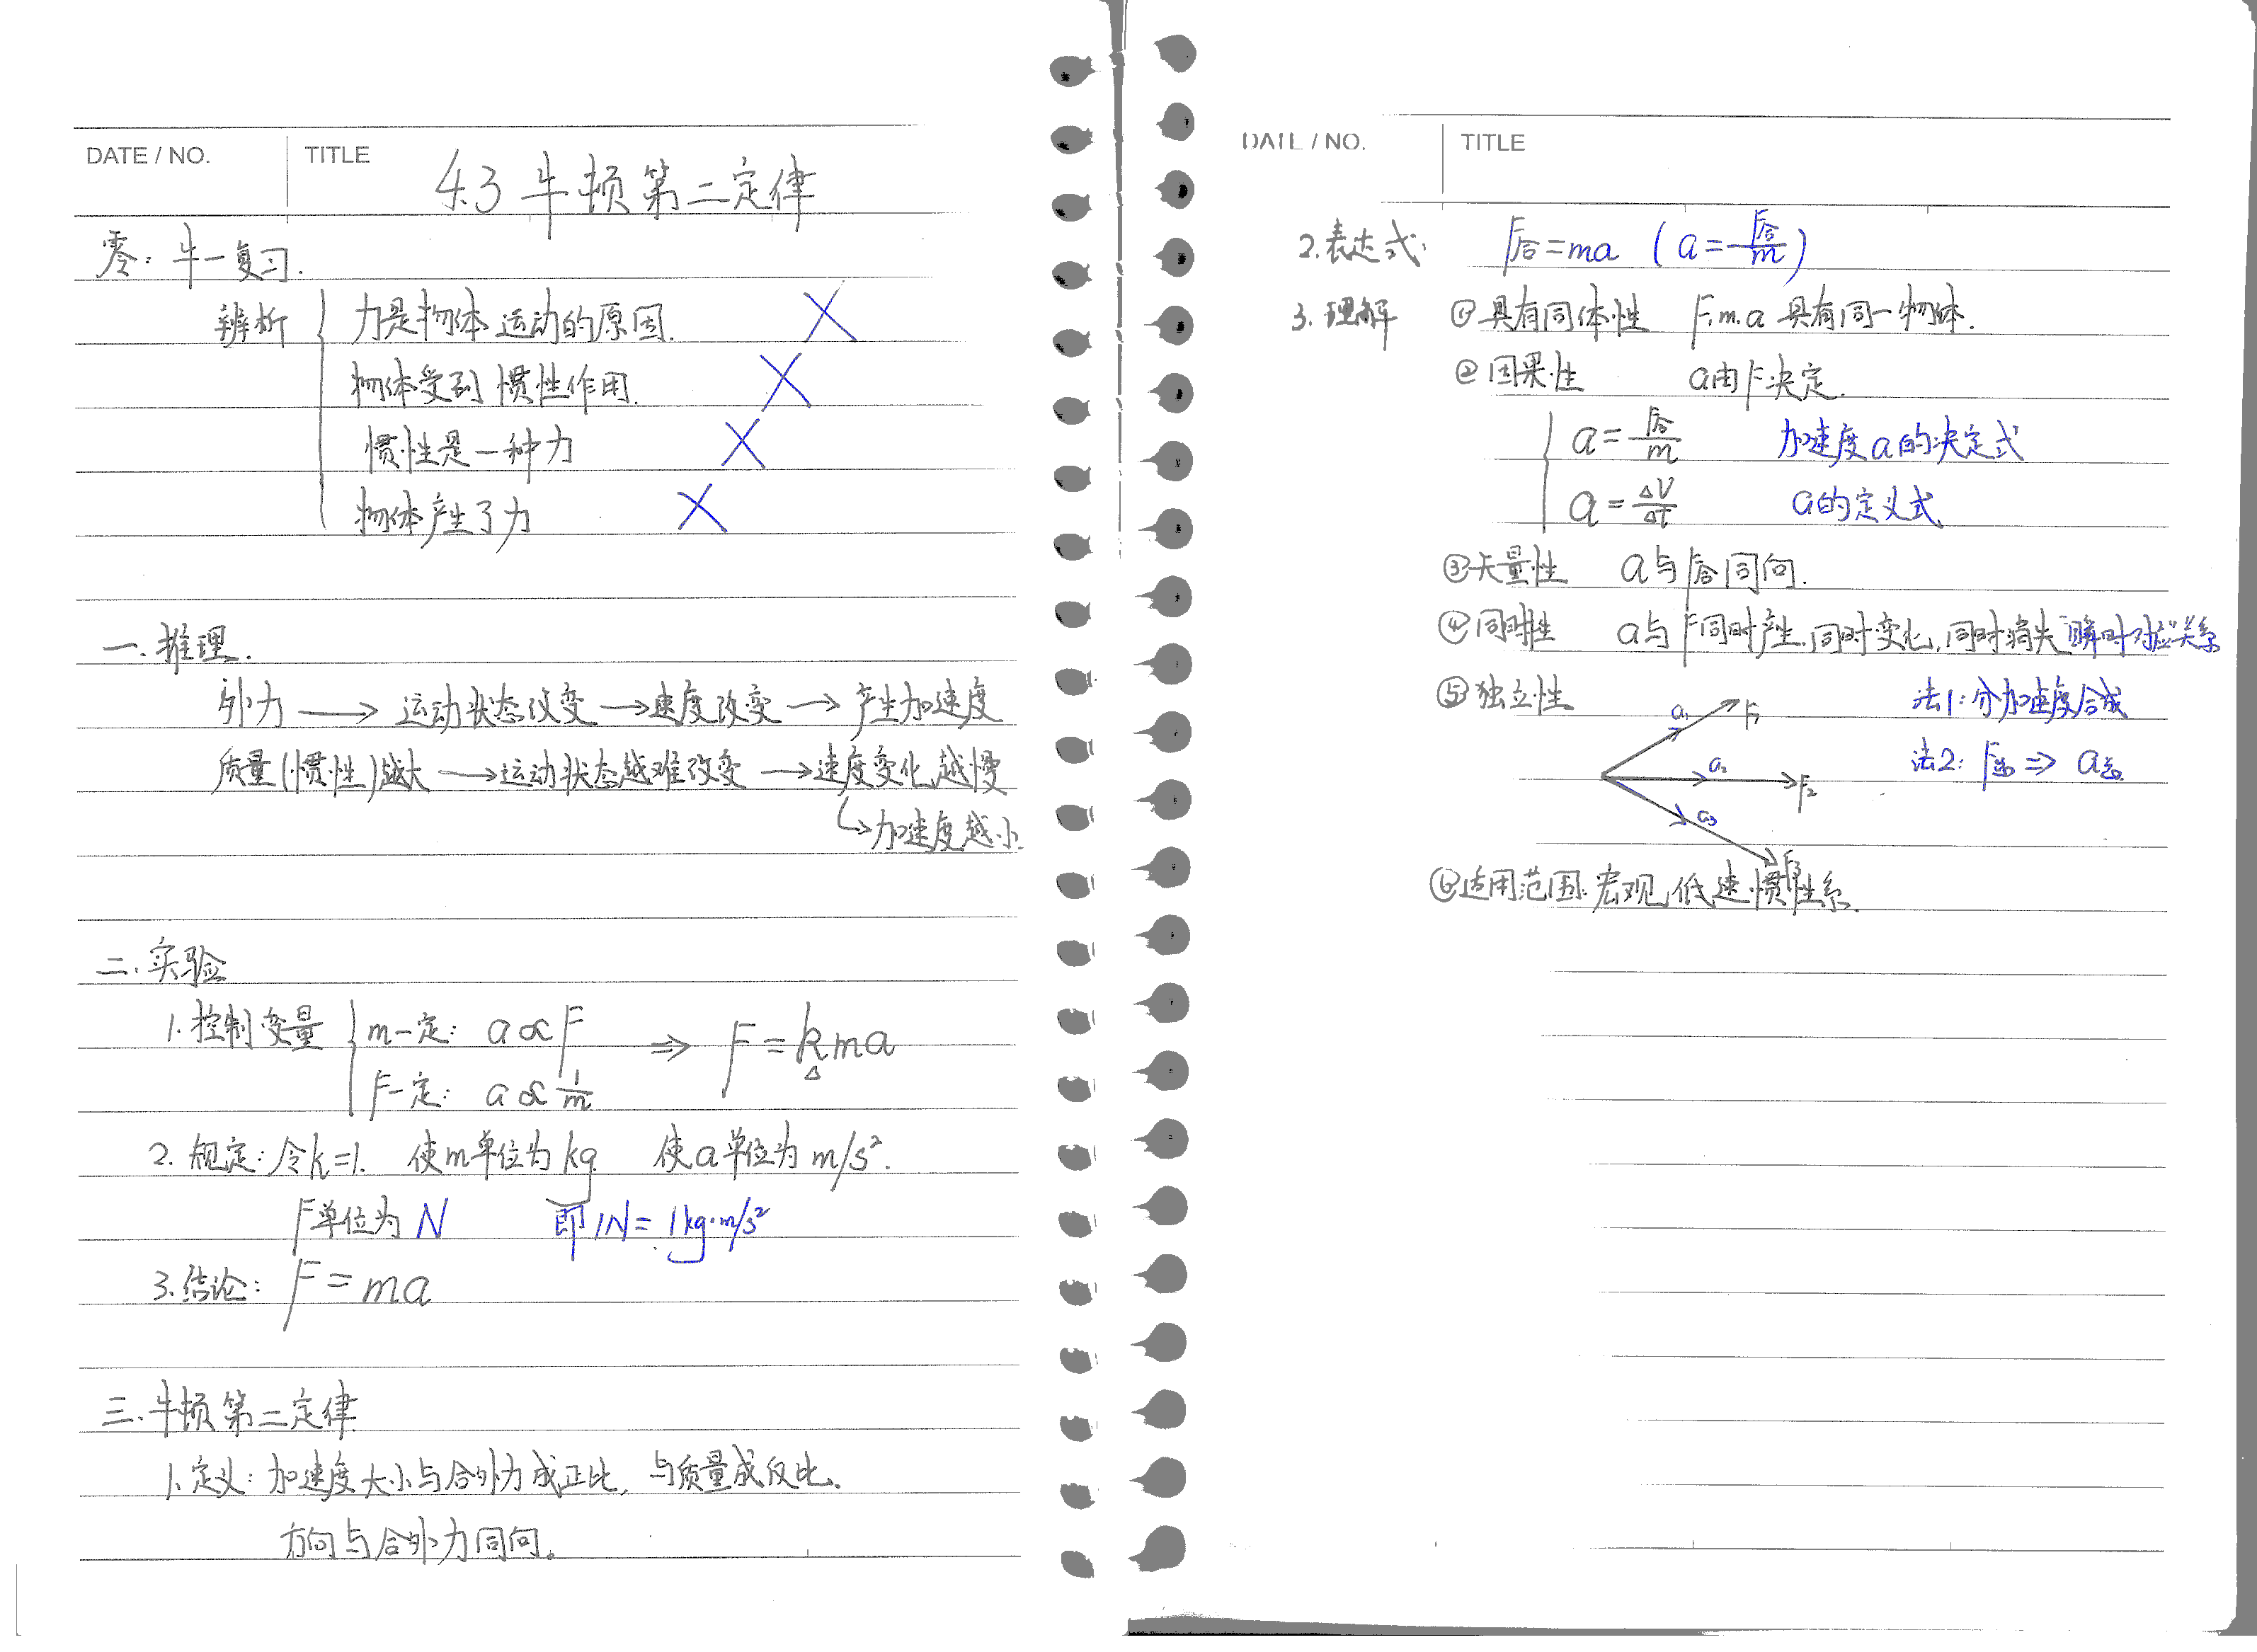 DATE / NO. TITLE 4.3 牛顿第二定律
零：牛一复习.
辨析 { 力是物体运动的原因. ×
物体受到惯性作用. ×
惯性是一种力 ×
物体产生了力 ×
一.推理.
外力 → 运动状态改变 → 速度改变 → 产生加速度
质量(惯性)越大 → 运动状态越难改变 → 速度变化越慢
↳加速度越小.
二.实验
1.控制变量 { m一定: a∝F ⇒ F=kma
F一定: a∝1/m △
2.规定:令k=1. 使m单位为kg 使a单位为m/s².
F单位为N 即1N=1kg·m/s²
3.结论: F=ma
三.牛顿第二定律
1.定义:加速度大小与合外力成正比,与质量成反比.
方向与合外力同向。
DATE / NO. TITLE
2.表达式: F合=ma (a=F合/m)
3.理解 ①具有同体性 F.m.a 具有同一物体.
②因果性 a由F决定.
{ a=F合/m 加速度a的决定式
a=ΔV/Δt a的定义式
③矢量性 a与F合同向.
④同时性 a与F同时产生,同时变化,同时消失"瞬时对应"关系
⑤独立性 a₁ F₁ 法1:分加速度合成
a₂ F₂ 法2: F总⇒a总
a₃ F₃
⑥适用范围:宏观,低速.惯性系.